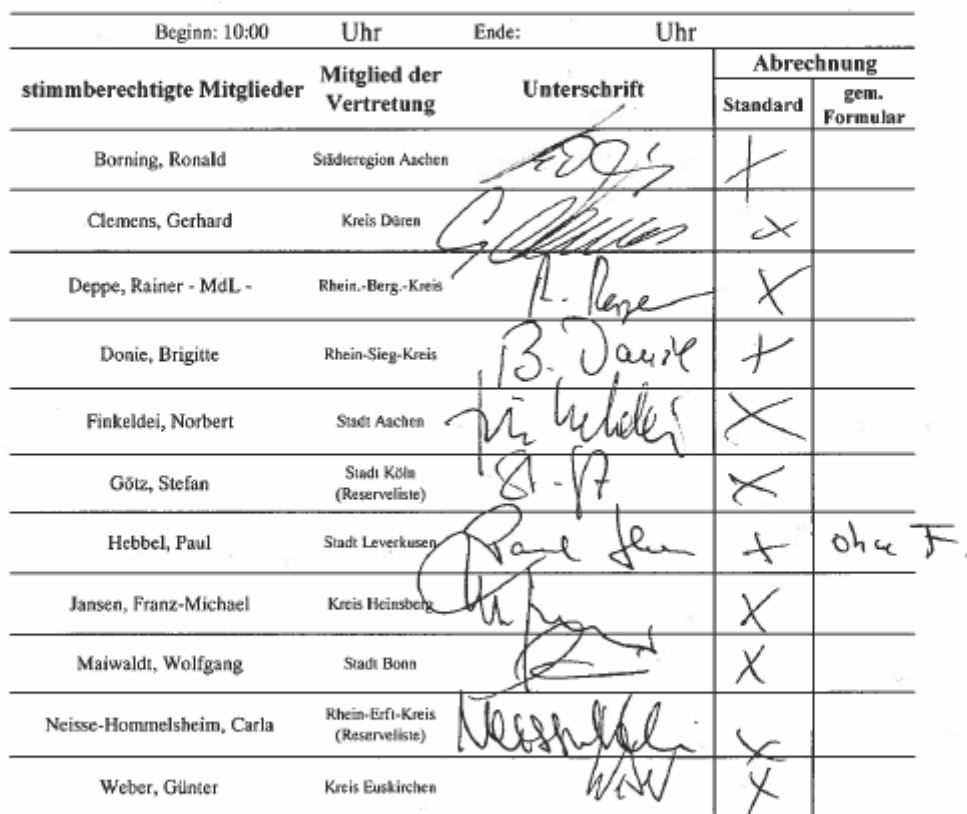 Beginn: 10:00 Uhr Ende: Uhr
stimmberechtigte Mitglieder Mitglied der Vertretung Unterschrift Abrechnung
Standard gem. Formular
Borning, Ronald Städteregion Aachen
Clemens, Gerhard Kreis Düren
Deppe, Rainer - MdL - Rhein.-Berg.-Kreis
Donie, Brigitte Rhein-Sieg-Kreis B. Donie
Finkeldei, Norbert Stadt Aachen
Götz, Stefan Stadt Köln (Reserveliste)
Hebbel, Paul Stadt Leverkusen Paul ohne F.
Jansen, Franz-Michael Kreis Heinsberg
Maiwaldt, Wolfgang Stadt Bonn
Neisse-Hommelsheim, Carla Rhein-Erft-Kreis (Reserveliste)
Weber, Günter Kreis Euskirchen